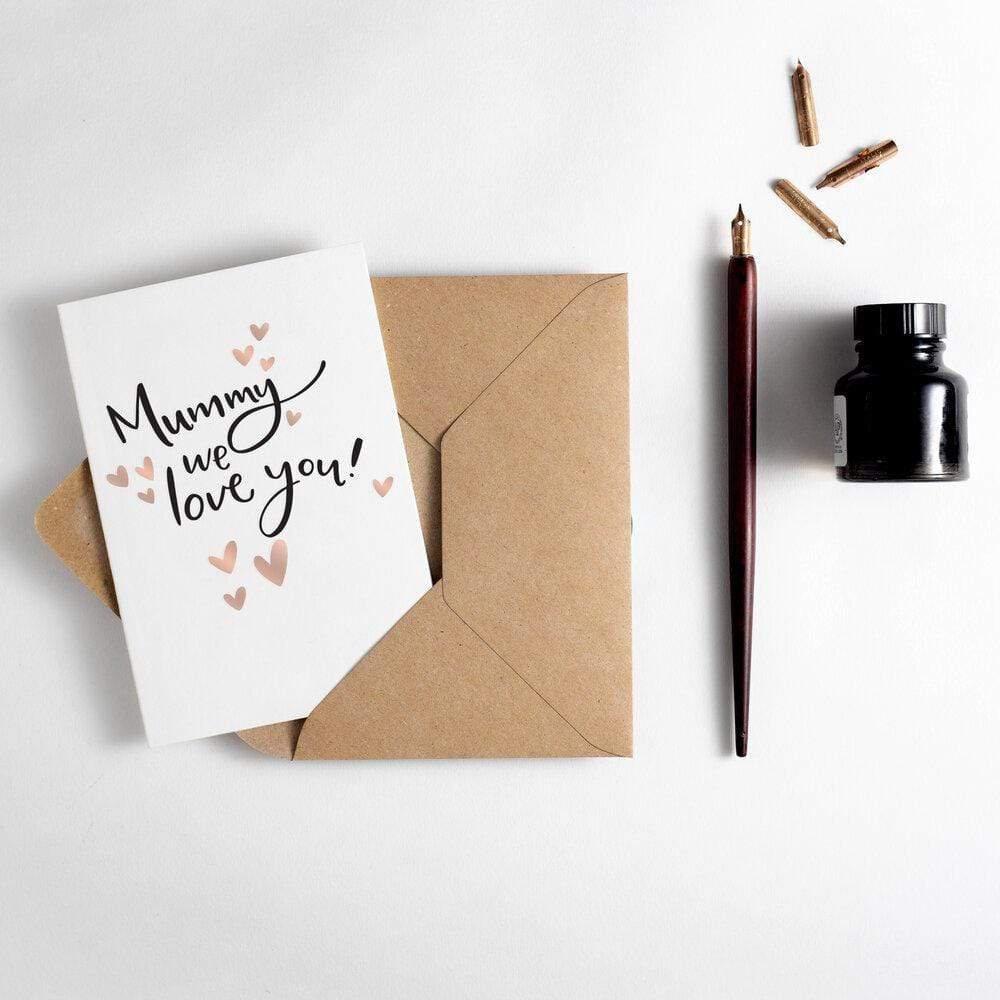 Mummy
we
love you!